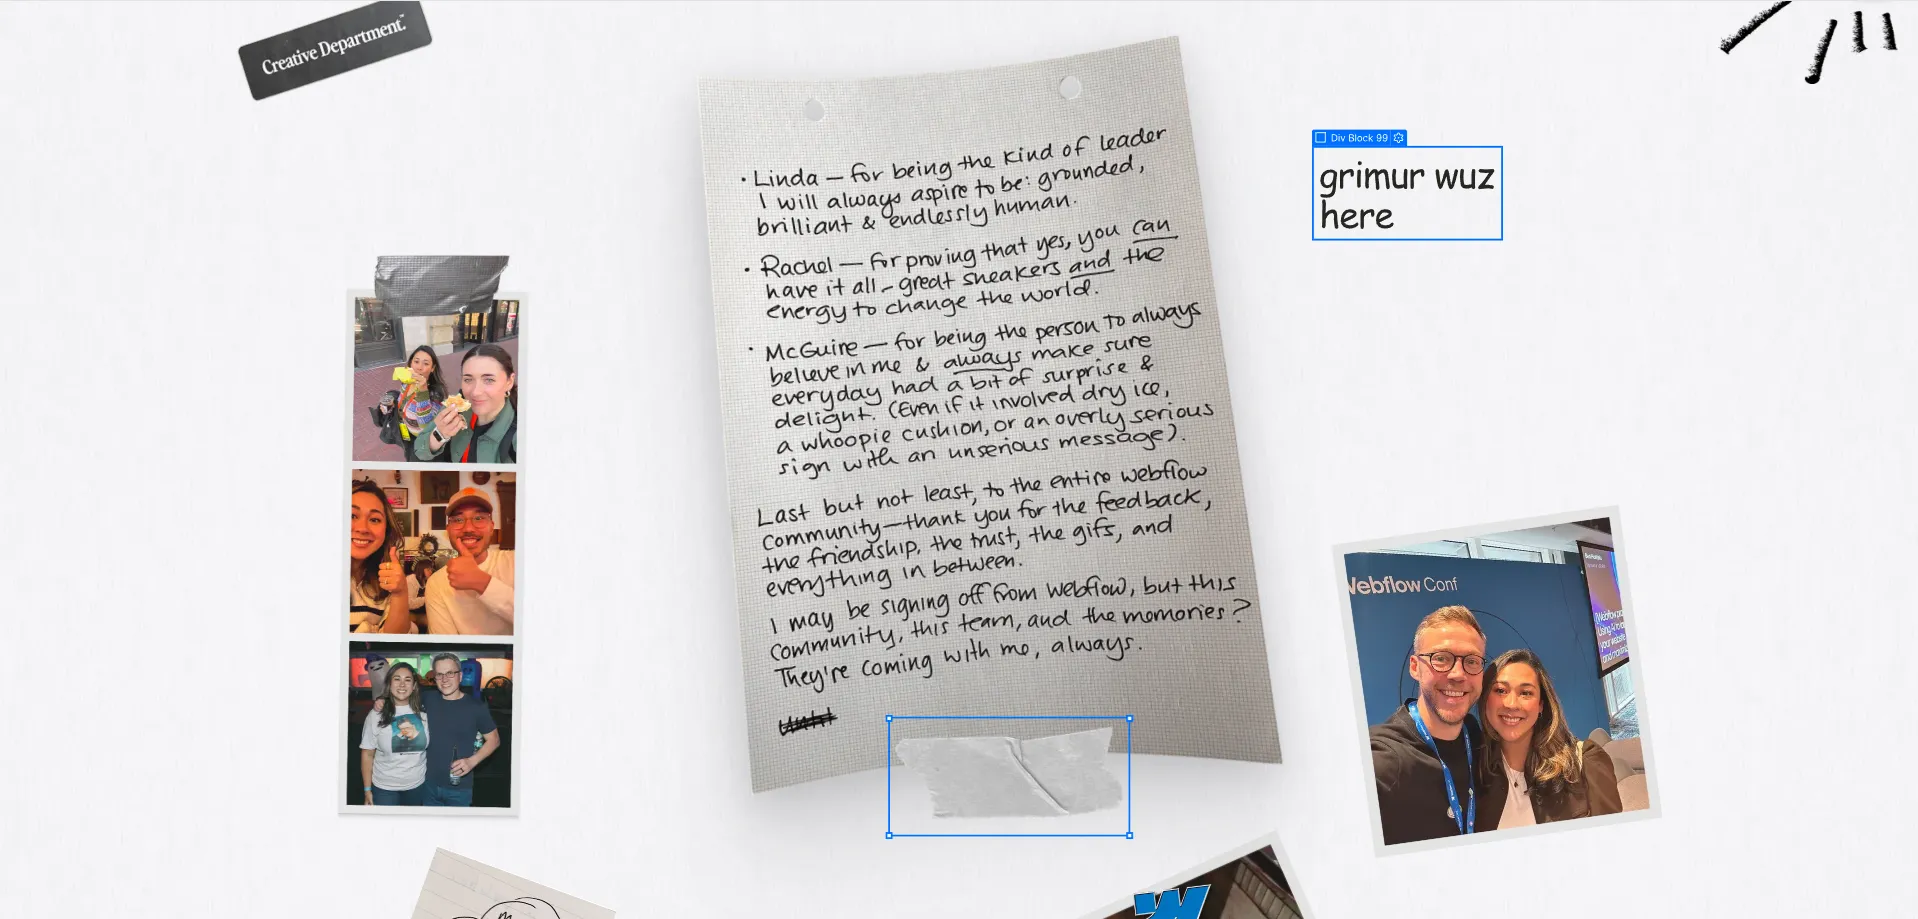 Creative Department.™
• Linda — for being the kind of leader
I will always aspire to be: grounded,
brilliant & endlessly human.
• Rachel — for proving that yes, you can
have it all - great sneakers and the
energy to change the world.
• McGuire — for being the person to always
believe in me & always make sure
everyday had a bit of surprise &
delight. (Even if it involved dry ice,
a whoopie cushion, or an overly serious
sign with an unserious message).
Last but not least, to the entire webflow
community—thank you for the feedback,
the friendship, the trust, the gifs, and
everything in between.
I may be signing off from Webflow, but this
community, this team, and the memories?
They're coming with me, always.
Div Block 99
grimur wuz
here
Webflow Conf